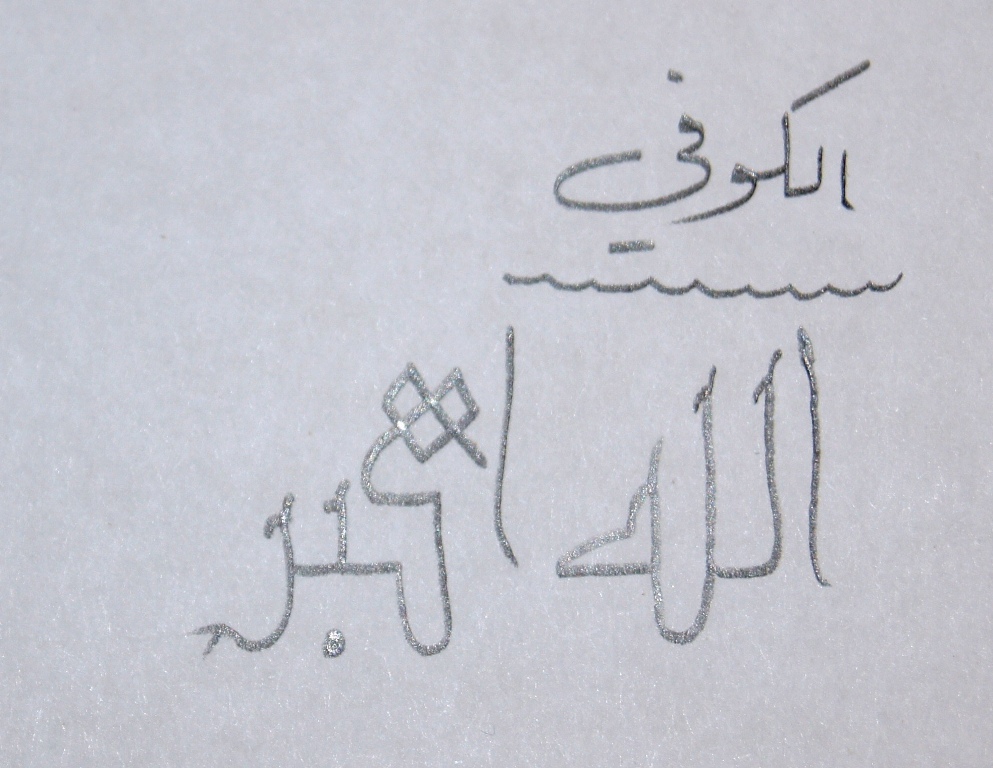 الكوفي
الله اكبر